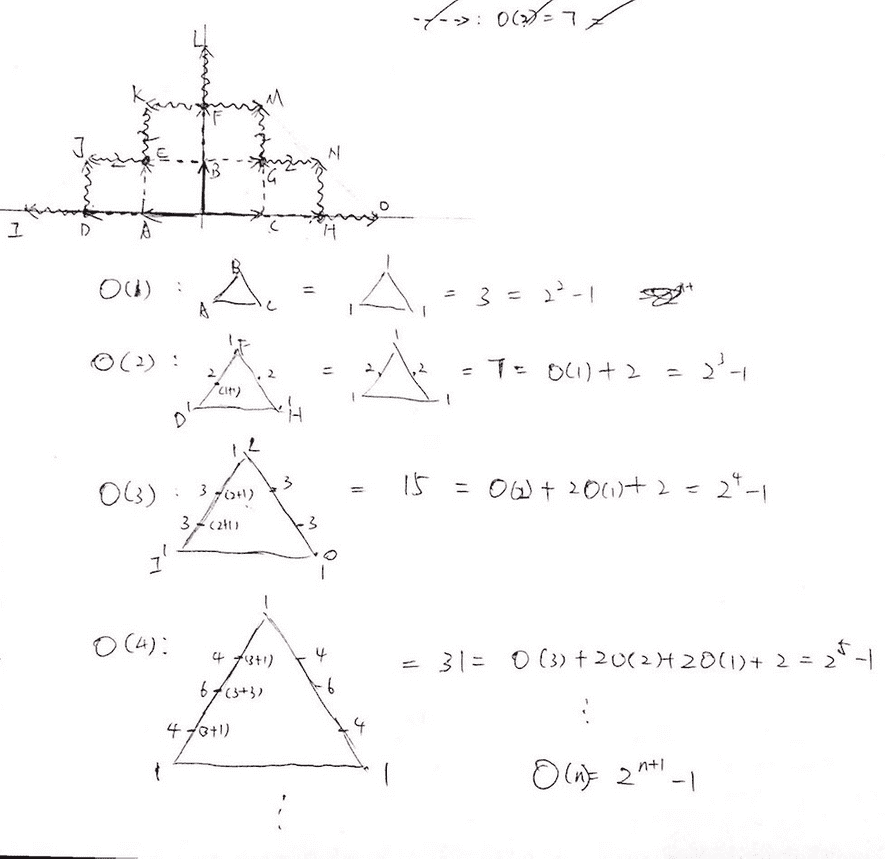 ---->: O(2) = 7 =
L
K F M
J E B G N
I D A C H O
O(1) : A B C = 1 1 1 = 3 = 2² - 1
O(2) : 1 F 2 2 (1+1) D 1 1 H = 1 2 2 1 1 = 7 = O(1) + 2 = 2³ - 1
O(3) : 1 L 3 (2+1) 3 3 (2+1) 3 I 1 O 1 = 15 = O(2) + 2O(1) + 2 = 2⁴ - 1
O(4) : 1 4 (3+1) 4 6 (3+3) 6 4 (3+1) 4 1 1 = 31 = O(3) + 2O(2) + 2O(1) + 2 = 2⁵ - 1
⋮
O(n) = 2ⁿ⁺¹ - 1
⋮